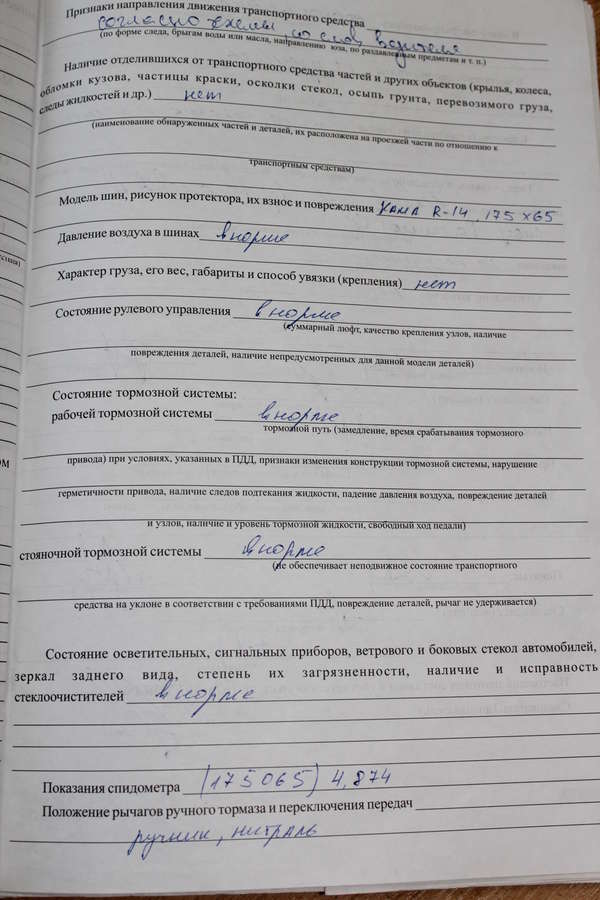 Признаки направления движения транспортного средства
согласно схемы, со слов водителя
(по форме следа, брызгам воды или масла, направлению юза, по раздавленным предметам и т. п.)
Наличие отделившихся от транспортного средства частей и других объектов (крылья, колеса,
обломки кузова, частицы краски, осколки стекол, осыпь грунта, перевозимого груза,
следы жидкостей и др.) нет
(наименование обнаруженных частей и деталей, их расположена на проезжей части по отношению к
транспортным средствам)
Модель шин, рисунок протектора, их взнос и повреждения КАМА R-14, 175 x 65
Давление воздуха в шинах в норме
Характер груза, его вес, габариты и способ увязки (крепления) нет
Состояние рулевого управления в норме
(суммарный люфт, качество крепления узлов, наличие
повреждения деталей, наличие непредусмотренных для данной модели деталей)
Состояние тормозной системы:
рабочей тормозной системы в норме
тормозной путь (замедление, время срабатывания тормозного
привода) при условиях, указанных в ПДД, признаки изменения конструкции тормозной системы, нарушение
герметичности привода, наличие следов подтекания жидкости, падение давления воздуха, повреждение деталей
и узлов, наличие и уровень тормозной жидкости, свободный ход педали)
стояночной тормозной системы в норме
(не обеспечивает неподвижное состояние транспортного
средства на уклоне в соответствии с требованиями ПДД, повреждение деталей, рычаг не удерживается)
Состояние осветительных, сигнальных приборов, ветрового и боковых стекол автомобилей,
зеркал заднего вида, степень их загрязненности, наличие и исправность
стеклоочистителей в норме
Показания спидометра (175065) 4,874
Положение рычагов ручного тормаза и переключения передач
ручник, нитраль